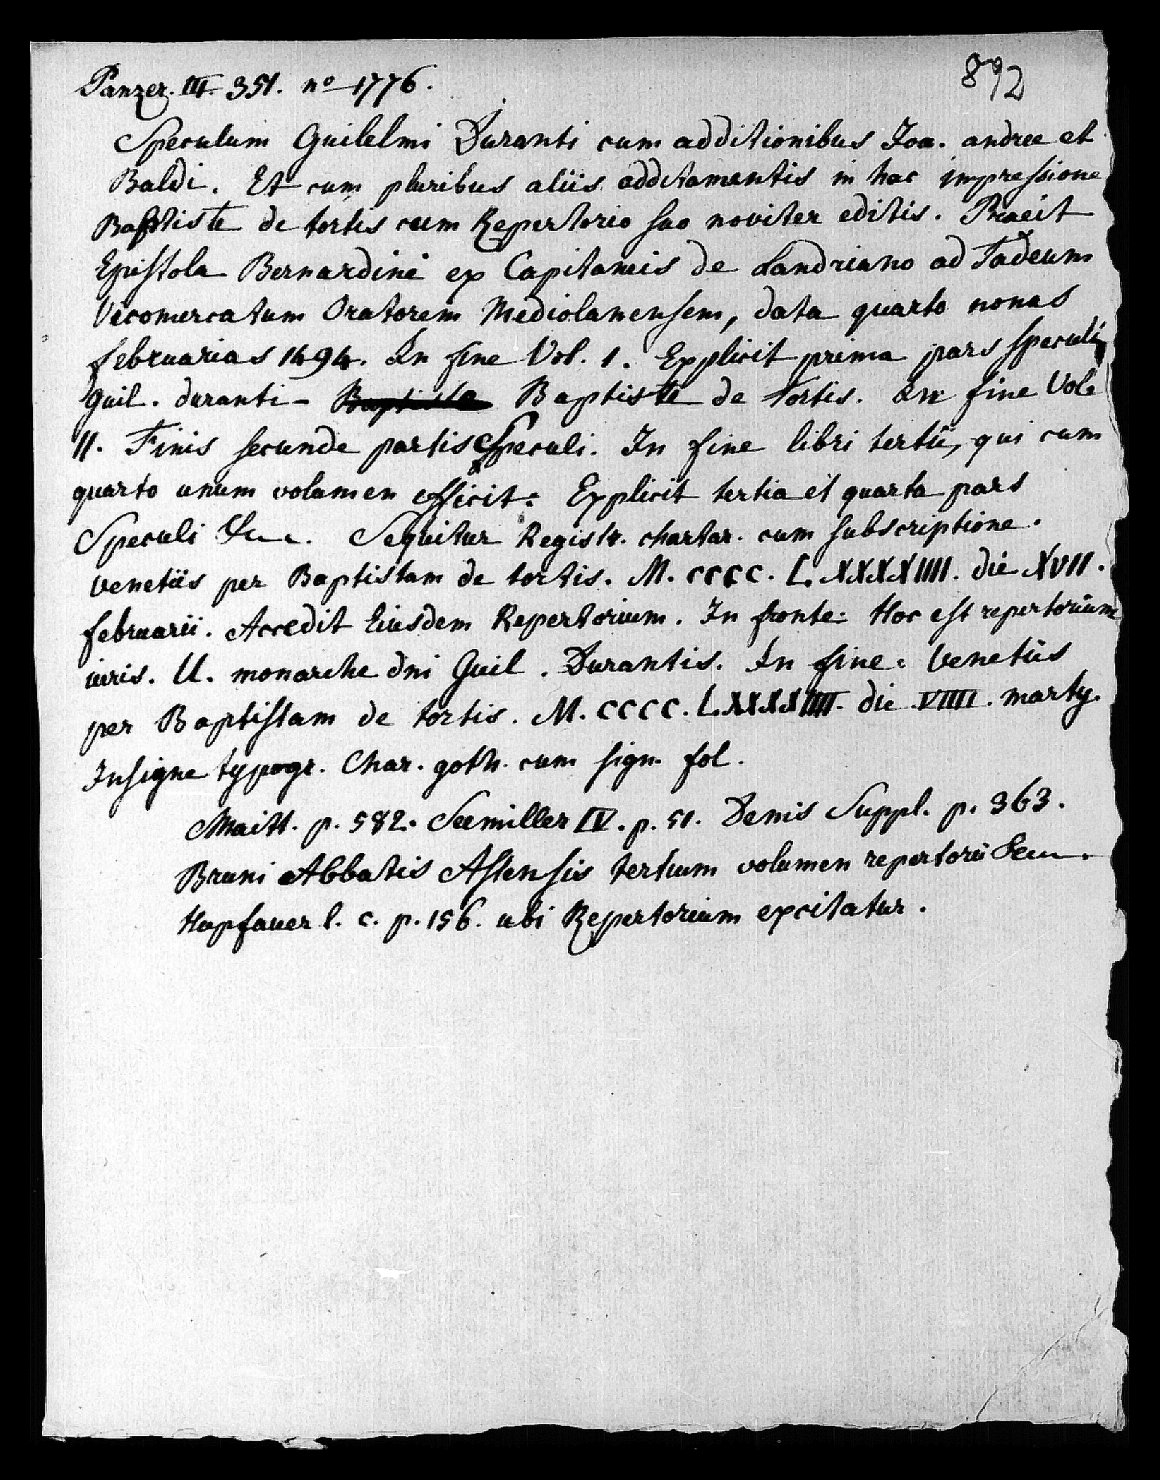 892
Panzer. III. 351. nº 1776.
Speculum Guilelmi Duranti cum additionibus Joa. andree et
Baldi. Et cum pluribus aliis additamentis in hac impressione
Baptiste de tortis cum Repertorio suo noviter editis. Praeit
Epistola Bernardini ex Capitaneis de Landriano ad Tadeum
Vicomercatum Oratorem Mediolanensem, data quarto nonas
februarias 1494. In fine Vol. 1. Explicit prima pars speculi
guil. duranti - Baptiste de Tortis. In fine Vol.
II. Finis secunde partis Speculi. In fine libri tertii, qui cum
quarto unum volumen efficit: Explicit tertia et quarta pars
Speculi &c. Sequitur Registr. chartar. cum subscriptione.
venetiis per Baptistam de tortis. M. cccc. LXXXXIIII. die XVII.
februarii. Accedit Eiusdem Repertorium. In fronte: Hoc est repertorium
iuris. U. monarche dni Guil. Durantis. In fine: Venetiis
per Baptistam de tortis. M. CCCC. LXXXXIIII. die VIIII. marty.
Insigne typogr. Char. goth. cum sign. fol.
Maitt. p. 582. Seemiller IV. p. 51. Denis Suppl. p. 363.
Bruni Abbatis Astensis tertium volumen repertorii &c.
Hupfauer l. c. p. 156. ubi Repertorium excitatur.